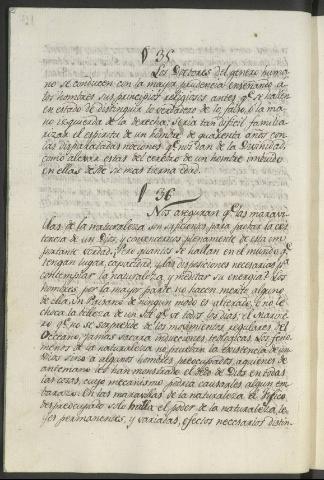 § 35.
Los Doctores del genero huma-
no se conducen con la mayor prudencia enseñando a
los hombres sus principios religiosos antes qe. se hallen
en estado de distinguir lo verdadero de lo falso, o la ma-
no izquierda de la derecha. Seria tan dificil familia-
rizar el espiritu de un hombre de quarenta años con
las disparatadas nociones qe. nos dan de la Divinidad,
como alexar estas del cerebro de un hombre imbuido
en ellas desde su mas tierna edad.
§ 36.
Nos aseguran qe. las maravi-
llas de la naturaleza son suficientes para probar la exis-
tencia de un Dios, y convencernos plenamente de esta im-
portante verdad. Pero quantos se hallan en el mundo qe.
tengan lugar, capacidad y las disposiciones necesarias pa.
contemplar la naturaleza y meditar su energia? Los
hombres por la mayor parte no hacen merito alguno
de ella. Un Paisano de ningun modo es alterado, o no le
choca la belleza de un sol qe. ve todos los dias; el Marine-
ro qe. no se sorprende de los movimientos regulares del
Océano, jamas sacará inducciones teologicas. Los feno-
menos de la naturaleza no prueban la existencia de un
Dios sino a algunos hombres preocupados, a quienes de
antemano se les han mostrado el dedo de Dios en todas
las cosas, cuyo mecanismo podria causarles algun em-
barazo. En las maravillas de la naturaleza el Fisico
despreocupado solo halla el poder de la naturaleza, le-
yes permanentes, y variadas, efectos necesarios distin-